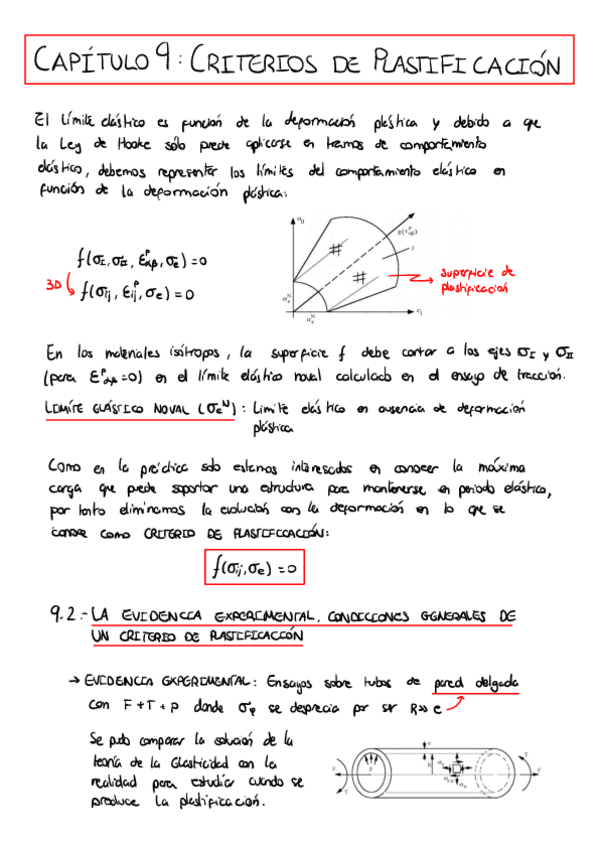 CAPÍTULO 9: CRITERIOS DE PLASTIFICACIÓN
El límite elástico es función de la deformación plástica y debido a que
la Ley de Hooke sólo puede aplicarse en tramos de comportamiento
elástico, debemos representar los límites del comportamiento elástico en
función de la deformación plástica:
f(σI, σII, εᵖαβ, σe) = 0
3D
f(σij, εijᵖ, σe) = 0
σII
g(εᵖαβ)
f
σeᴺ
σeᴺ
σI
superficie de
plastificación
En los materiales isótropos, la superficie f debe cortar a los ejes σI y σII
(para εᵖαβ = 0) en el límite elástico noval calculado en el ensayo de tracción.
LÍMITE ELÁSTICO NOVAL (σeᴺ): Límite elástico en ausencia de deformación
plástica
Como en la práctica solo estamos interesados en conocer la máxima
carga que puede soportar una estructura para mantenerse en periodo elástico,
por tanto eliminamos la evolución con la deformación en lo que se
conoce como CRITERIO DE PLASTIFICACIÓN:
f(σij, σe) = 0
9.2.- LA EVIDENCIA EXPERIMENTAL. CONDICIONES GENERALES DE
UN CRITERIO DE PLASTIFICACIÓN
→ EVIDENCIA EXPERIMENTAL: Ensayos sobre tubos de pared delgada
con F + T + p donde σp se desprecia por ser R>>e
Se pudo comparar la solución de la
teoría de la Elasticidad con la
realidad para estudiar cuando se
produce la plastificación.
F
T
p
e
R
T
F